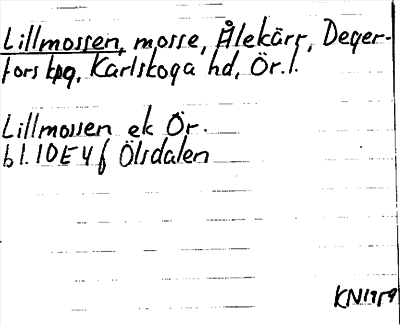 Lillmossen, mosse, Ålekärr, Deger-
fors kpg, Karlskoga hd, Ör.l.
Lillmossen ek Ör.
bl. 10E4f Ölsdalen
KN1959